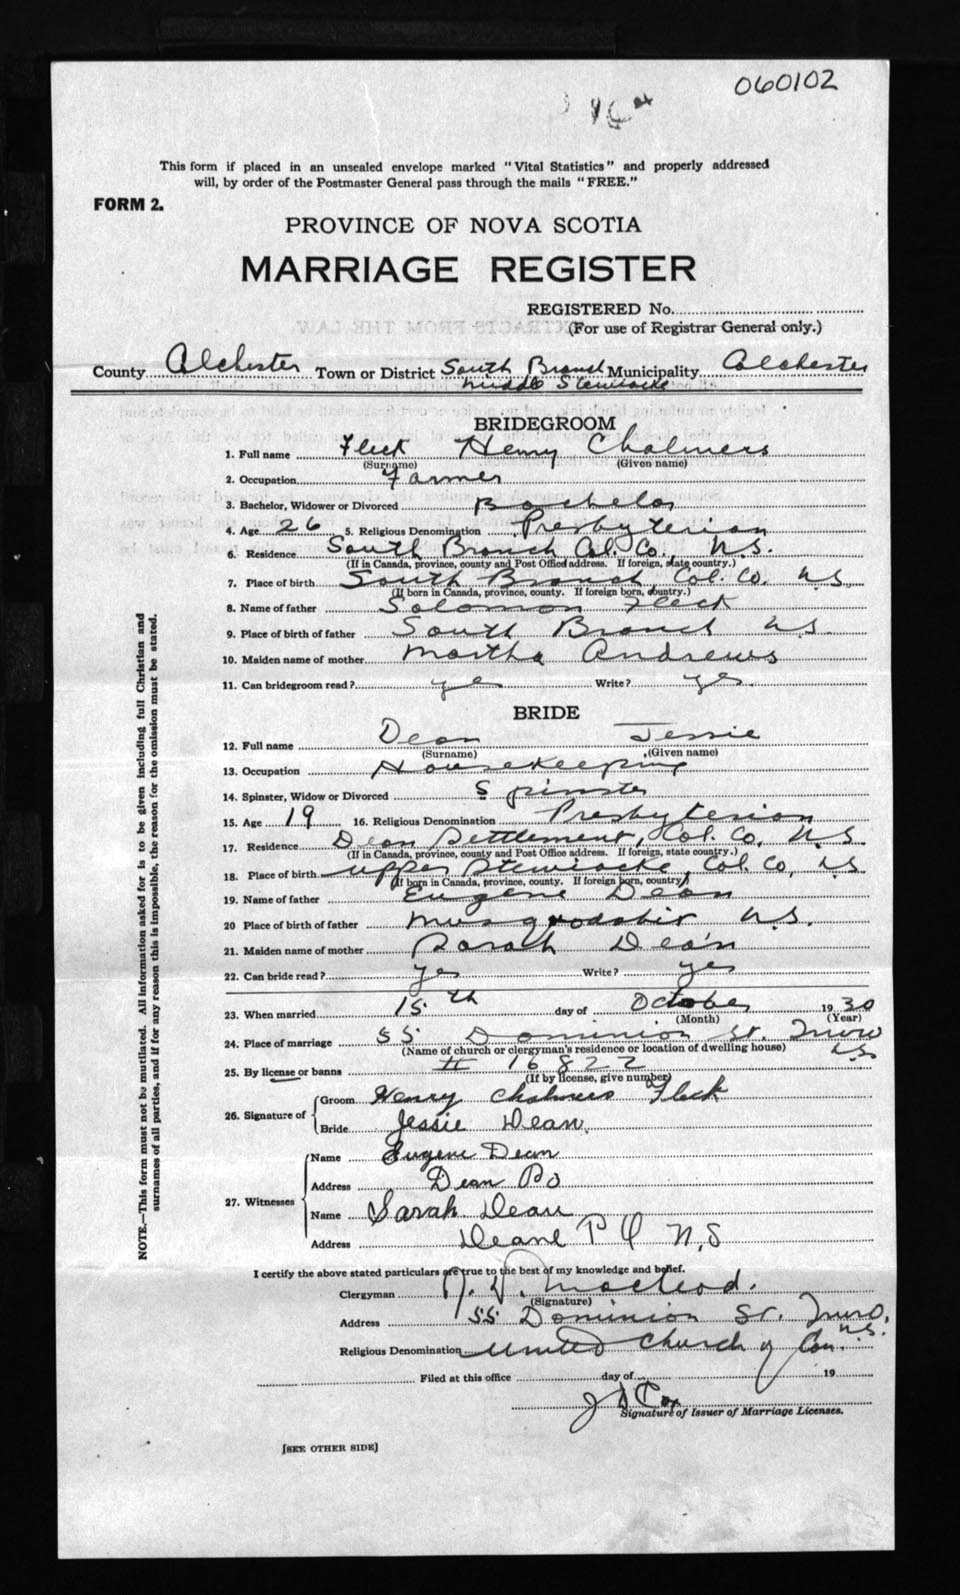 060102
This form if placed in an unsealed envelope marked "Vital Statistics" and properly addressed
will, by order of the Postmaster General pass through the mails "FREE."
FORM 2.
PROVINCE OF NOVA SCOTIA
MARRIAGE REGISTER
REGISTERED No.
(For use of Registrar General only.)
County Colchester Town or District South Branch Municipality Colchester
Middle Stewiacke
BRIDEGROOM
1. Full name Fleck Henry Chalmers
(Surname) (Given name)
2. Occupation Farmer
3. Bachelor, Widower or Divorced Bachelor
4. Age 26 5. Religious Denomination Presbyterian
6. Residence South Branch Col. Co., N.S.
(If in Canada, province, county and Post Office address. If foreign, state country.)
7. Place of birth South Branch, Col. Co. N.S.
(If born in Canada, province, county. If foreign born, country.)
8. Name of father Solomon Fleck
9. Place of birth of father South Branch N.S.
10. Maiden name of mother Martha Andrews
11. Can bridegroom read? yes Write? yes
BRIDE
12. Full name Dean Jessie
(Surname) (Given name)
13. Occupation Housekeeping
14. Spinster, Widow or Divorced Spinster
15. Age 19 16. Religious Denomination Presbyterian
17. Residence Dean Settlement, Col. Co. N.S.
(If in Canada, province, county and Post Office address. If foreign, state country.)
18. Place of birth Upper Stewiacke, Col. Co, N.S
(If born in Canada, province, county. If foreign born, country)
19. Name of father Eugene Dean
20 Place of birth of father Musquodobit N.S.
21. Maiden name of mother Sarah Dean
22. Can bride read? yes Write? yes
23. When married 15th day of October 1930
(Month) (Year)
24. Place of marriage 55 Dominion St. Truro
(Name of church or clergyman's residence or location of dwelling house) N.S.
25. By license or banns # 16822
(If by license, give number)
26. Signature of Groom Henry Chalmers Fleck
Bride Jessie Dean
27. Witnesses Name Eugene Dean
Address Dean PO
Name Sarah Dean
Address Deane P O N.S
I certify the above stated particulars are true to the best of my knowledge and belief.
Clergyman MacLeod.
(Signature)
Address 55 Dominion St. Truro,
N.S.
Religious Denomination United Church of Can.
Filed at this office day of 19
J D Cox
Signature of Issuer of Marriage Licenses.
[SEE OTHER SIDE]
NOTE.—This form must not be mutilated. All information asked for is to be given including full Christian and
surnames of all parties, and if for any reason this is impossible, the reason for the omission must be stated.